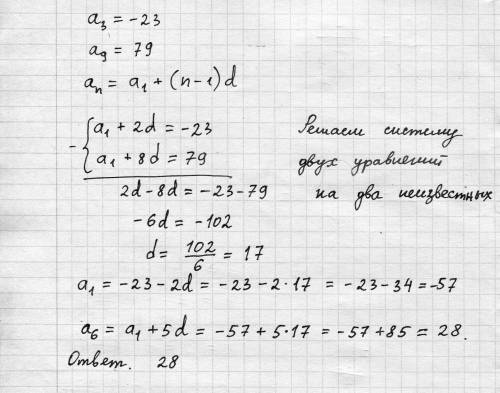 a₃ = -23
a₉ = 79
aₙ = a₁ + (n-1)d
- { a₁ + 2d = -23
a₁ + 8d = 79
Решаем систему
двух уравнений
на два неизвестных
2d - 8d = -23 - 79
-6d = -102
d = 102/6 = 17
a₁ = -23 - 2d = -23 - 2·17 = -23 - 34 = -57
a₆ = a₁ + 5d = -57 + 5·17 = -57 + 85 = 28.
Ответ. 28